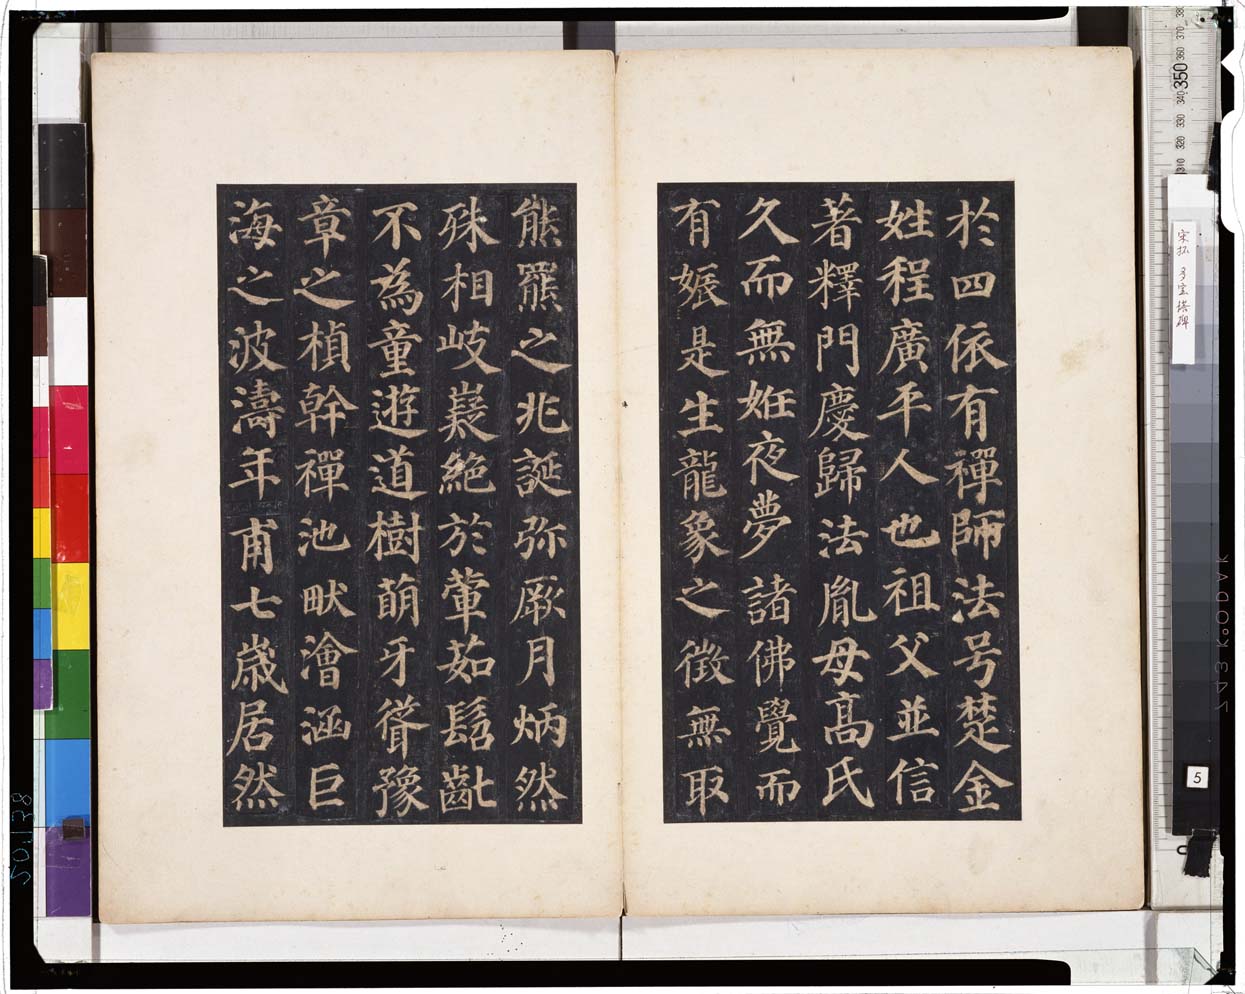 於四依有禪師法号楚金
姓程廣平人也祖父並信
著釋門慶歸法胤母高氏
久而無姙夜夢諸佛覺而
有娠是生龍象之徵無取
熊羆之兆誕弥厥月炳然
殊相岐嶷絕於葷茹髫齔
不為童遊道樹萌牙聳豫
章之楨幹禪池畎澮涵巨
海之波濤年甫七歲居然
宋拓 多宝塔碑
5
350
340
330
320
310
360
370
380
KODAK